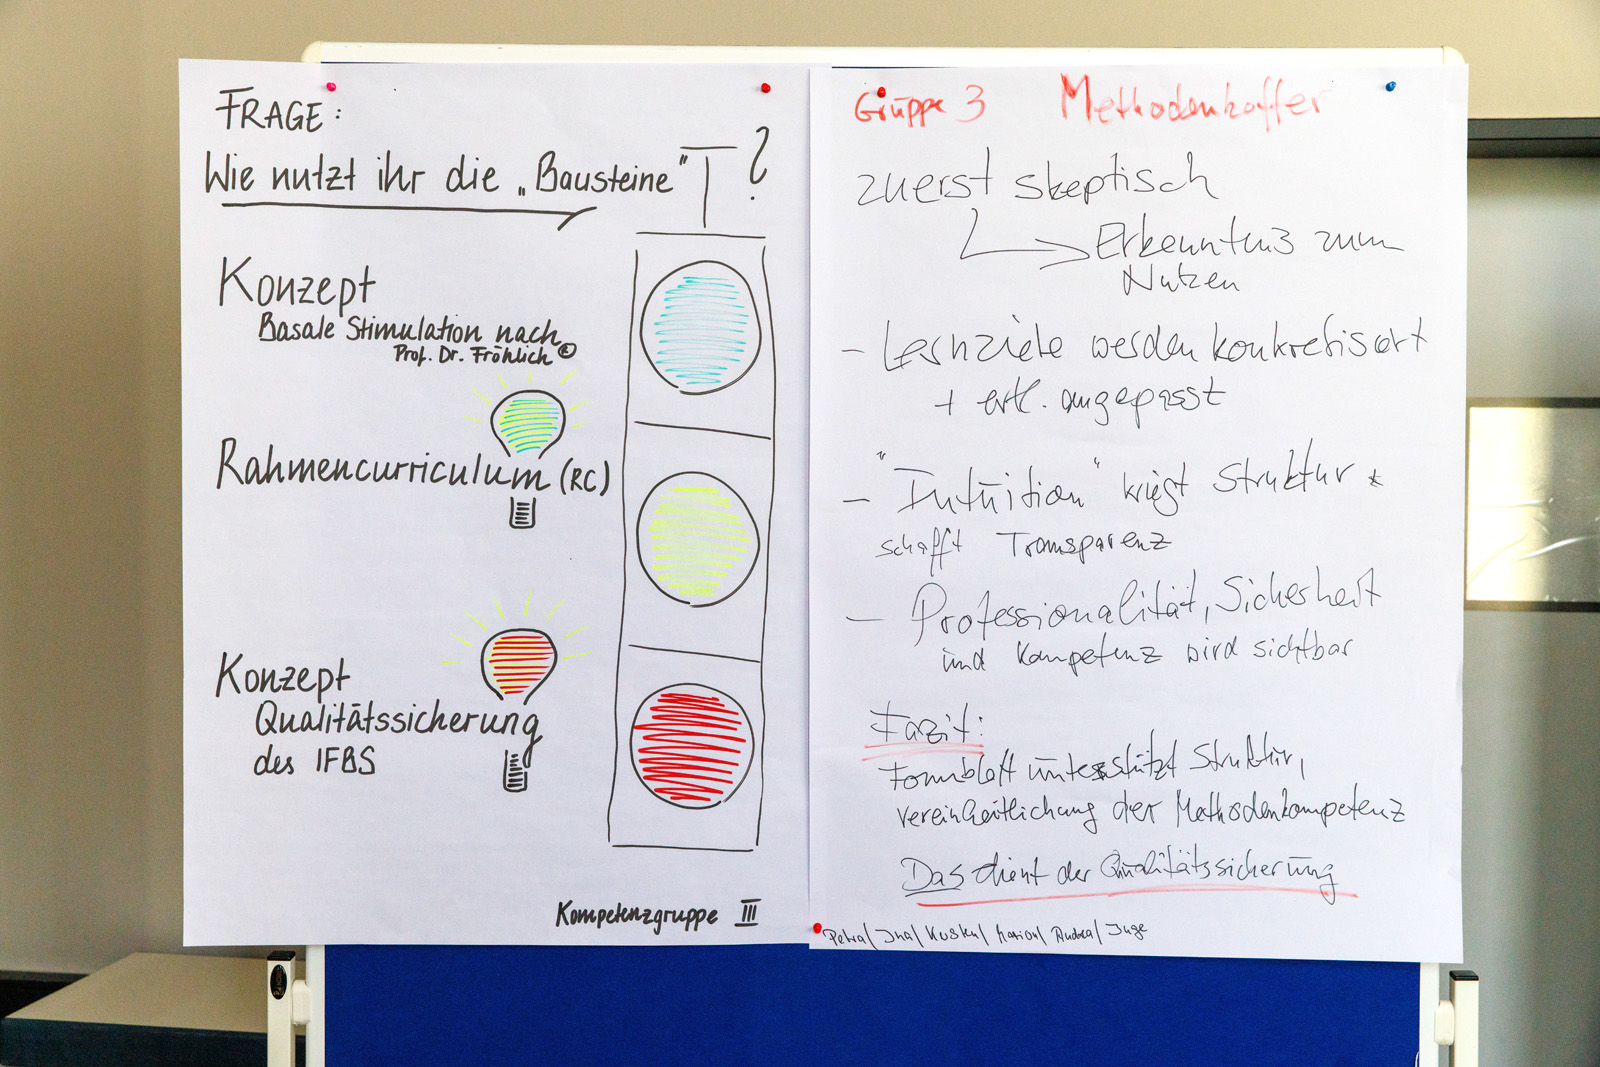 FRAGE:
Wie nutzt ihr die „Bausteine" ?
Konzept
Basale Stimulation nach
Prof. Dr. Fröhlich ©
Rahmencurriculum (RC)
Konzept
Qualitätssicherung
des IFBS
Kompetenzgruppe III
Gruppe 3 Methodenkoffer
zuerst skeptisch
Erkenntnis zum
Nutzen
- Lernziele werden konkretisiert
+ evtl. angepasst
- "Intuition" kriegt Struktur +
schafft Transparenz
- Professionalität, Sicherheit
und Kompetenz wird sichtbar
Fazit:
Formblatt unterstützt Struktur,
Vereinheitlichung der Methodenkompetenz
Das dient der Qualitätssicherung
Petra/ Ina/ Marion/ Andrea/ Inge